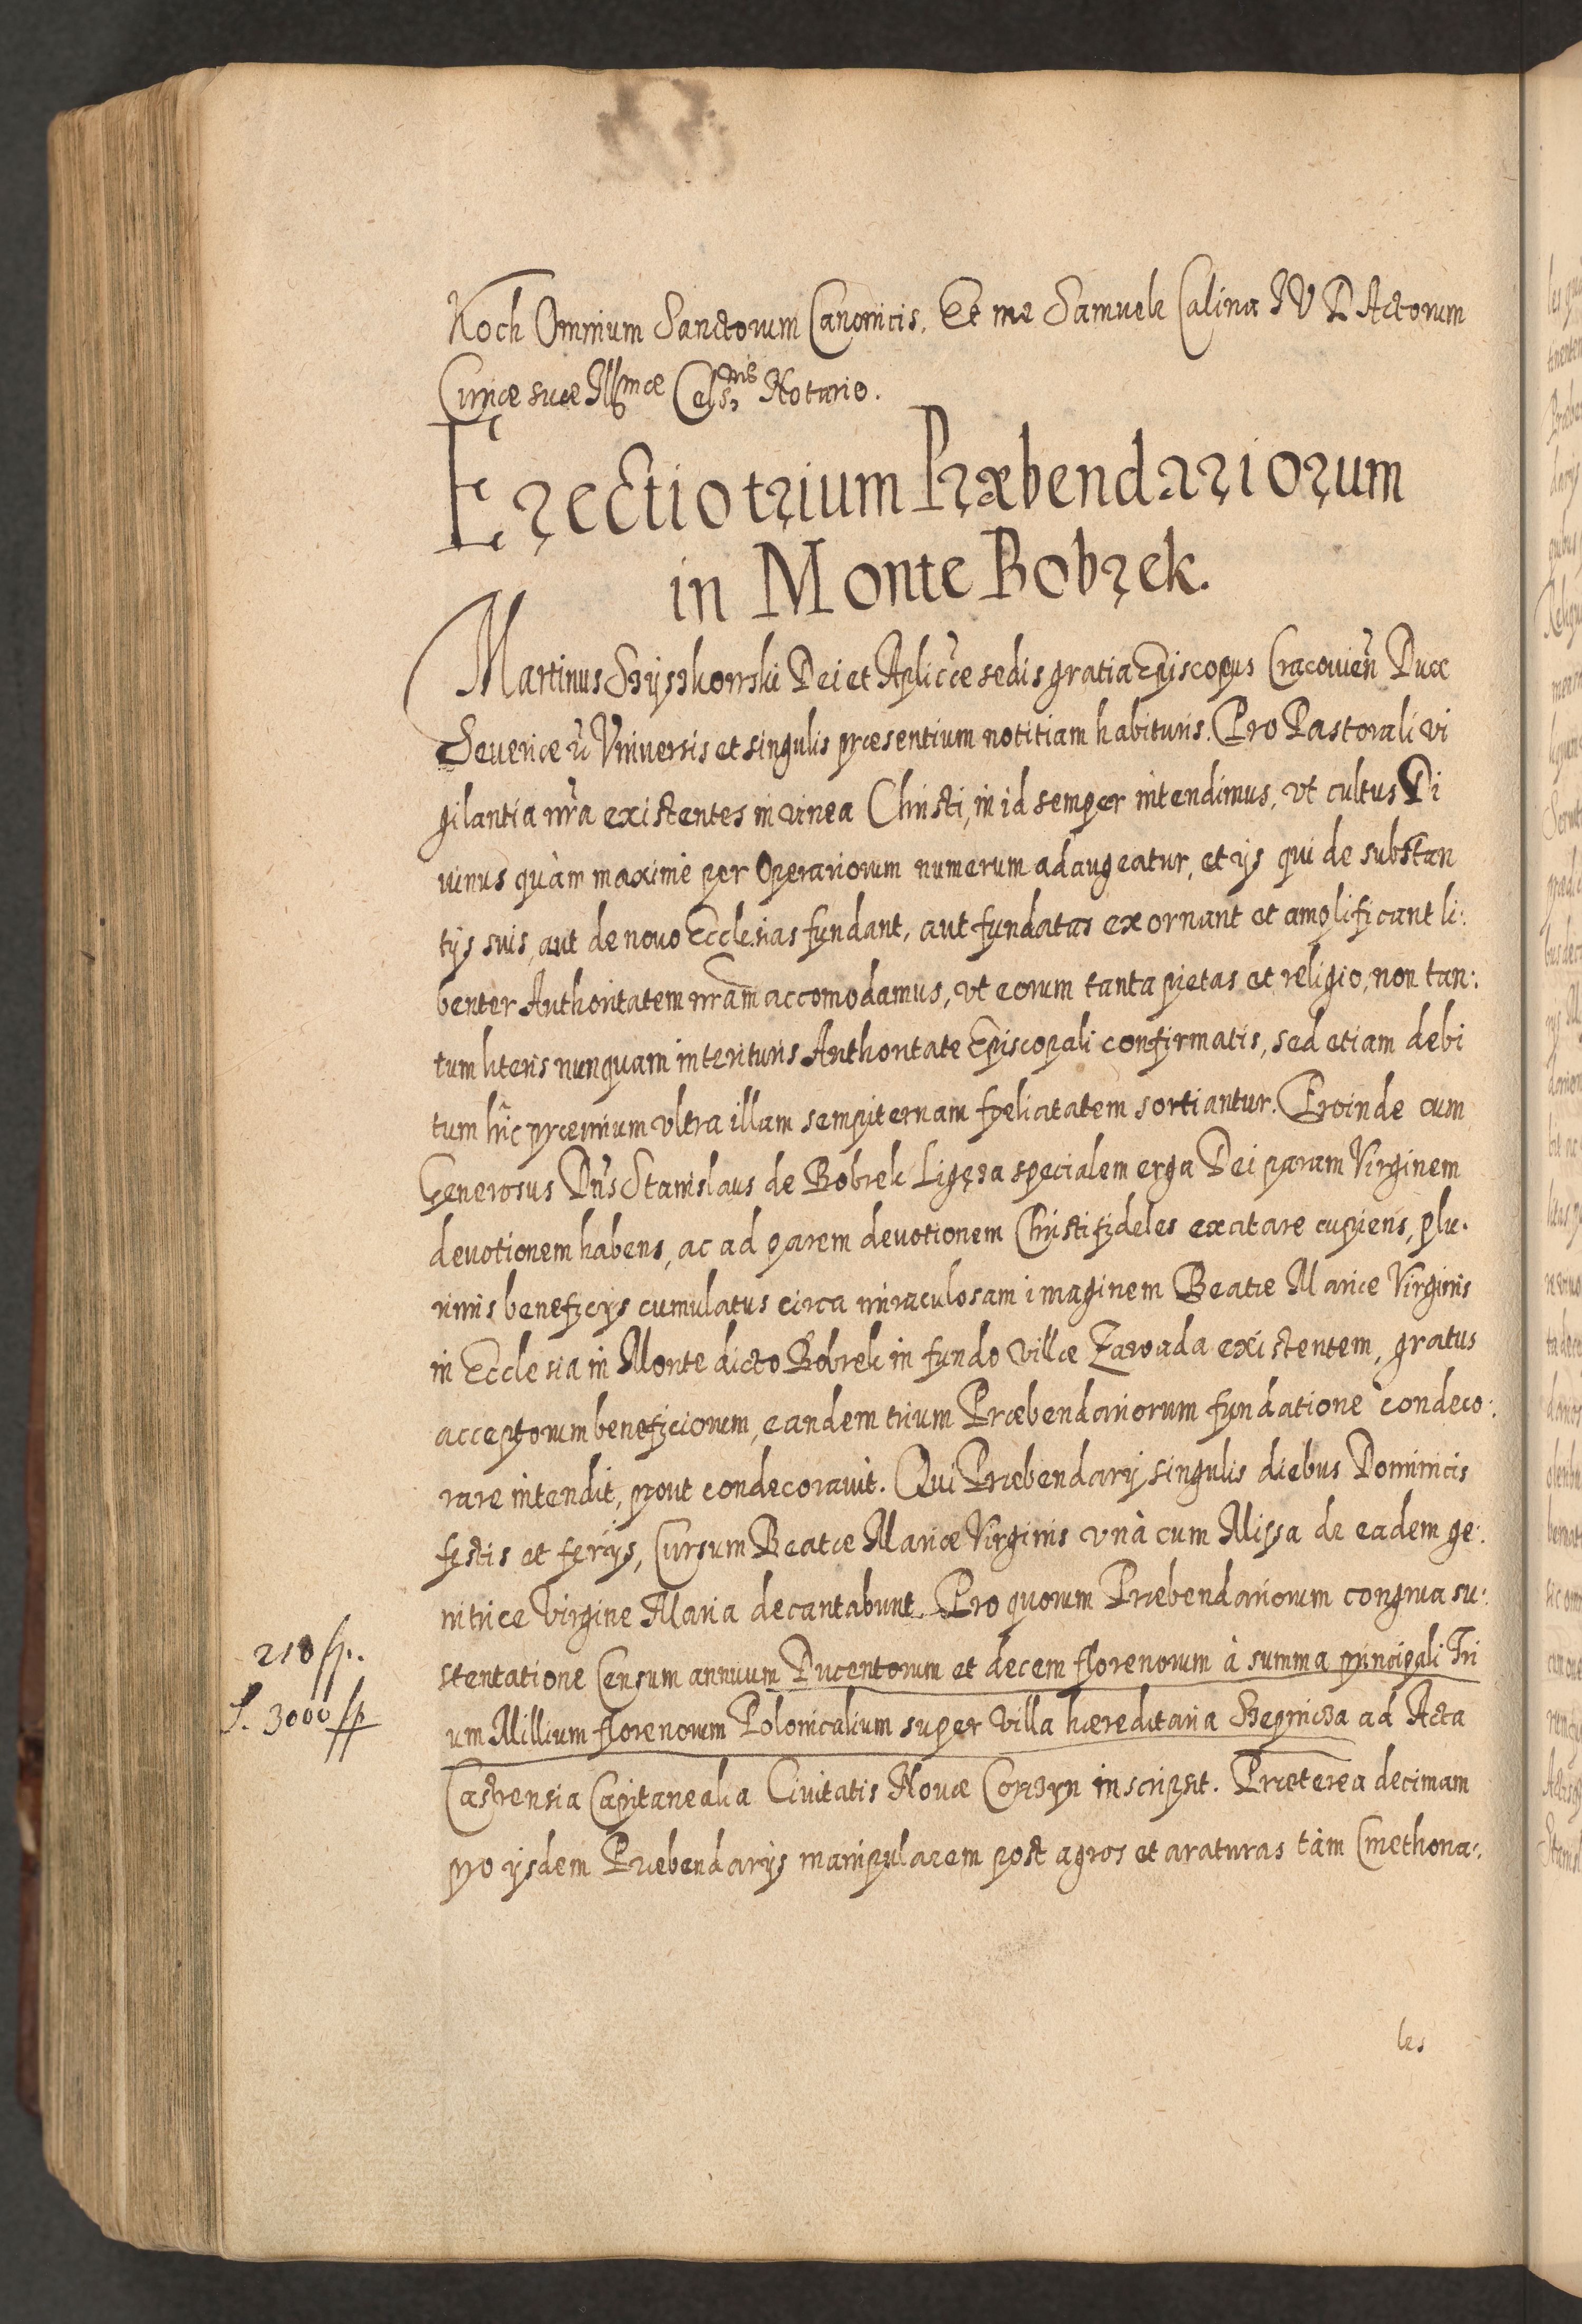 Koch Omnium Sanctorum Canonicis. Et me Samuele Calina I V D Actorum
Curiæ suæ Illmæ Celsnis Notario.
Erectio trium Præbendariorum
in Monte Bobrek.
Martinus Szyszkowski Dei et Aplicæ sedis gratia Episcopus Cracovien̄ Dux
Severiæ Vniversis et singulis præsentium notitiam habituris. Pro Pastorali vi
gilantia nr̃a existentes in vinea Christi, in id semper intendimus, vt cultus Di
vinus quàm maximè per Operariorum numerum adaugeatur, et ijs qui de substan
tijs suis, aut de novo Ecclesias fundant, aut fundatas exornant et amplificant li:
benter Authoritatem nr̃am accomodamus, vt eorum tanta pietas et religio, non tan:
tum literis nunquam interituris Authoritate Episcopali confirmatis, sed etiam debi
tum hîc præmium vltra illam sempiternam fælicitatem sortiantur. Proinde cum
Generosus Dn̄s Stanislaus de Bobrek Ligęza specialem erga Dei param Virginem
devotionem habens, ac ad parem devotionem Christi fideles excitare cupiens, plu:
rimis beneficijs cumulatus circa miraculosam imaginem Beatæ Mariæ Virginis
in Ecclesia in Monte dicto Bobrek in fundo Villæ Zawada existentem, gratus
acceptorum beneficiorum, eandem trium Præbendariorum fundatione condeco:
rare intendit, prout condecoravit. Qui Præbendarij singulis diebus Dominicis
festis et ferijs, Cursum Beatæ Mariæ Virginis vnà cum Missa de eadem ge:
nitrice Virgine Maria decantabunt. Pro quorum Præbendariorum congrua su:
stentatione Censum annuum Ducentorum et decem florenorum à summa principali Tri
um Millium florenorum Polonicalium super Villa hæreditaria Szepnicza ad Acta
Castrensia Capitanealia Civitatis Novæ Corczyn inscripsit. Præterea decimam
pro ijsdem Præbendarijs manipularem post agros et araturas tàm Cmethona:
210 fp.
S. 3000 fp
les